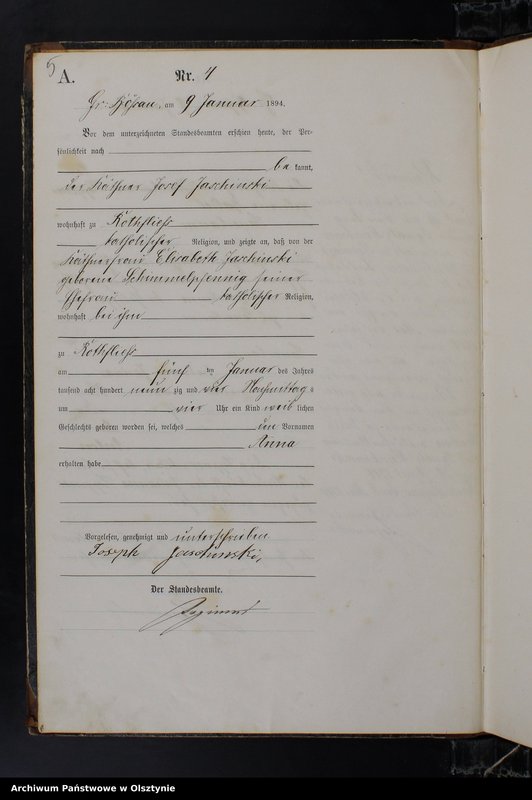 5
A.
Nr. 4
Gr: Kößau, am 9 Januar 1894.
Vor dem unterzeichneten Standesbeamten erschien heute, der Per-
sönlichkeit nach
be kannt,
der Käthner Josef Jaschinski
wohnhaft zu Rothfließ
katholischer Religion, und zeigte an, daß von der
Käthnerfrau Elisabeth Jaschinski
geborene Schimmelpfennig seiner
Ehefrau katholischer Religion,
wohnhaft bei ihm
zu Rothfließ
am fünf ten Januar des Jahres
tausend acht hundert neun zig und vier Nachmittag s
um vier Uhr ein Kind weib lichen
Geschlechts geboren worden sei, welches den Vornamen
Anna
erhalten habe
Vorgelesen, genehmigt und unterschrieben
Joseph Jaschinski,
Der Standesbeamte.
Archiwum Państwowe w Olsztynie